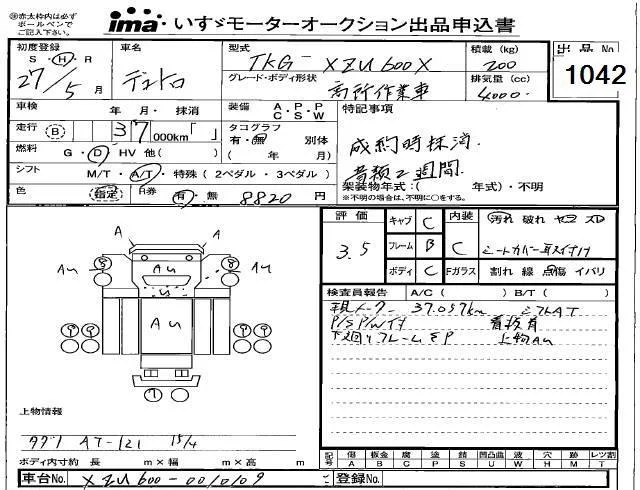 ※赤太枠内は必ず
ボールペンで
ご記入下さい。
ima・いすゞモーターオークション出品申込書
初度登録 車名 型式 積載 (kg) 出品 No
S・H・R デュトロ TKG- XZU600X 200 1042
27/5月 グレード・ボディ形状 排気量 (cc)
高所作業車 4,000
車検 年・月・抹消 装備 A・P・P C・S・W 特記事項
走行 B 37 000km「 」 タコグラフ 有・無 別体
成約時抹消.
燃料 G・D・HV 他( ) ( 年 月)
書類2週間.
シフト M/T・A/T・特殊 ( 2ペダル・3ペダル )
架装物年式:( 年式)・不明
※不明の場合は、不明に○をする。
色 R券 有・無 8820 円
評価 キャブ C 内装 汚れ 破れ ヤコゲ スレ
3.5 フレーム B C シートカバー取付
ボディ C Fガラス 割れ 線 点傷 イバリ
A A
Au Au Au
Au
検査員報告 A/C ( ) B/T ( )
現メーター 37,057km シフトAT
P/S P/W付 看板有
下廻リフレームSP 上物Au
上物情報
タダノ AT-121 15/4
ボディ内寸約 長 m×幅 m×高 m
記号 傷 板金 腐 塗 錆 凹凸曲 波 穴 跡 レツ割
A B C P S U W H M T
車台No. XZU600-0010109 登録No.